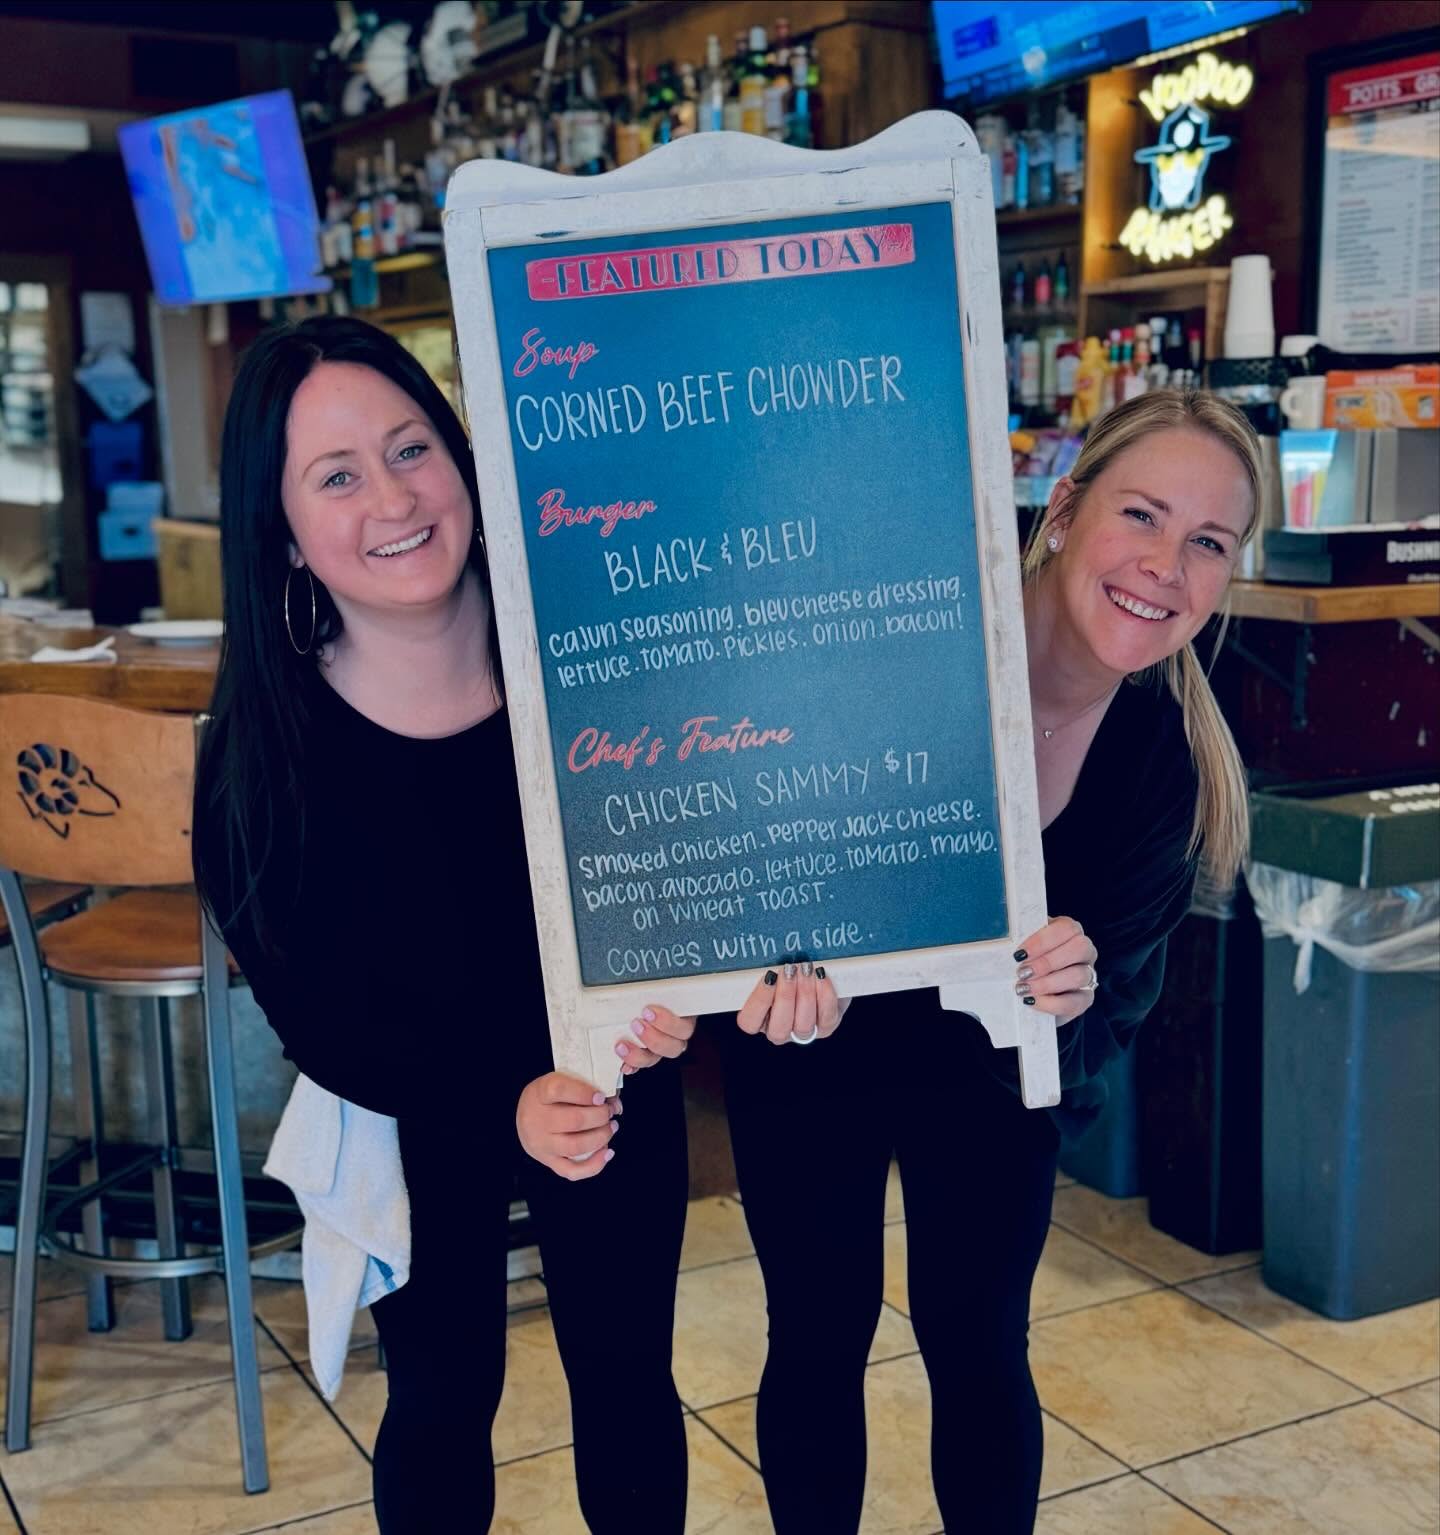 VOODOO
RANGER
POTTS GR
-FEATURED TODAY-
Soup
CORNED BEEF CHOWDER
Burger
BLACK & BLEU
cajun seasoning. bleu cheese dressing.
lettuce. tomato. Pickles. onion. bacon!
Chef's Feature
CHICKEN SAMMY $17
smoked chicken. pepper jack cheese.
bacon. avocado. lettuce. tomato. mayo.
on wheat toast.
comes with a side.
BUSHMI